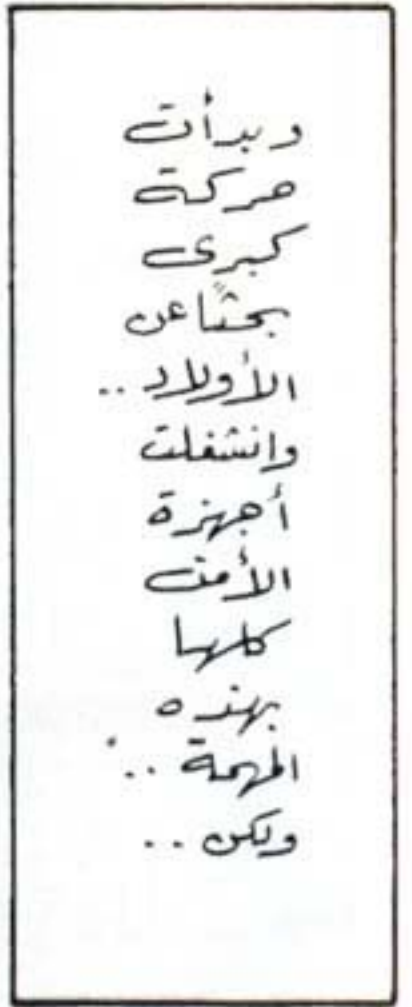 وبدأت
حركة
كبرى
بحثاً عن
الأولاد ..
وانشغلت
أجهزة
الأمن
كلها
بهذه
المهمة ..
ولكن ..